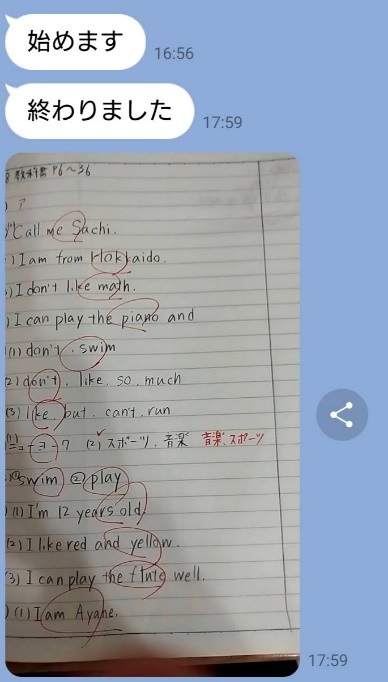 始めます
16:56
終わりました
17:59
教科書 P6〜36
?
Call me Sachi.
) I am from Hokkaido.
) I don't like math.
) I can play the piano and
(1) don't . swim
(2) don't . like . so . much
(3) like . but . can't . run
ニューヨーク (2) スポーツ、音楽 音楽、スポーツ
swim ② play
) (1) I'm 12 years old.
(2) I like red and yellow.
(3) I can play the flute well.
) (1) I am Ayane.
17:59